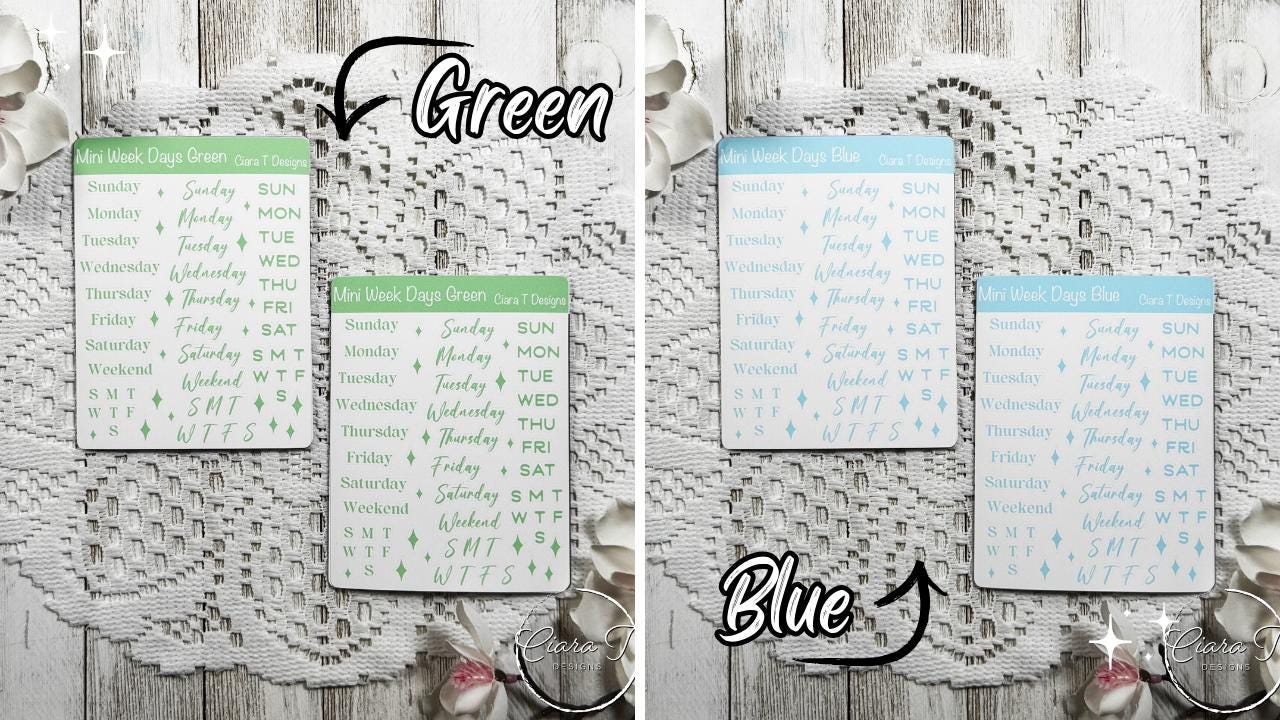 Green
Mini Week Days Green Ciara T Designs
Sunday
Monday
Tuesday
Wednesday
Thursday
Friday
Saturday
Weekend
S M T
W T F
S
Sunday
Monday
Tuesday
Wednesday
Thursday
Friday
Saturday
Weekend
S M T
W T F S
SUN
MON
TUE
WED
THU
FRI
SAT
S M T
W T F
S
Mini Week Days Green Ciara T Designs
Sunday
Monday
Tuesday
Wednesday
Thursday
Friday
Saturday
Weekend
S M T
W T F
S
Sunday
Monday
Tuesday
Wednesday
Thursday
Friday
Saturday
Weekend
S M T
W T F S
SUN
MON
TUE
WED
THU
FRI
SAT
S M T
W T F
S
Ciara T
DESIGNS
Mini Week Days Blue Ciara T Designs
Sunday
Monday
Tuesday
Wednesday
Thursday
Friday
Saturday
Weekend
S M T
W T F
S
Sunday
Monday
Tuesday
Wednesday
Thursday
Friday
Saturday
Weekend
S M T
W T F S
SUN
MON
TUE
WED
THU
FRI
SAT
S M T
W T F
S
Mini Week Days Blue Ciara T Designs
Sunday
Monday
Tuesday
Wednesday
Thursday
Friday
Saturday
Weekend
S M T
W T F
S
Sunday
Monday
Tuesday
Wednesday
Thursday
Friday
Saturday
Weekend
S M T
W T F S
SUN
MON
TUE
WED
THU
FRI
SAT
S M T
W T F
S
Blue
Ciara T
DESIGNS